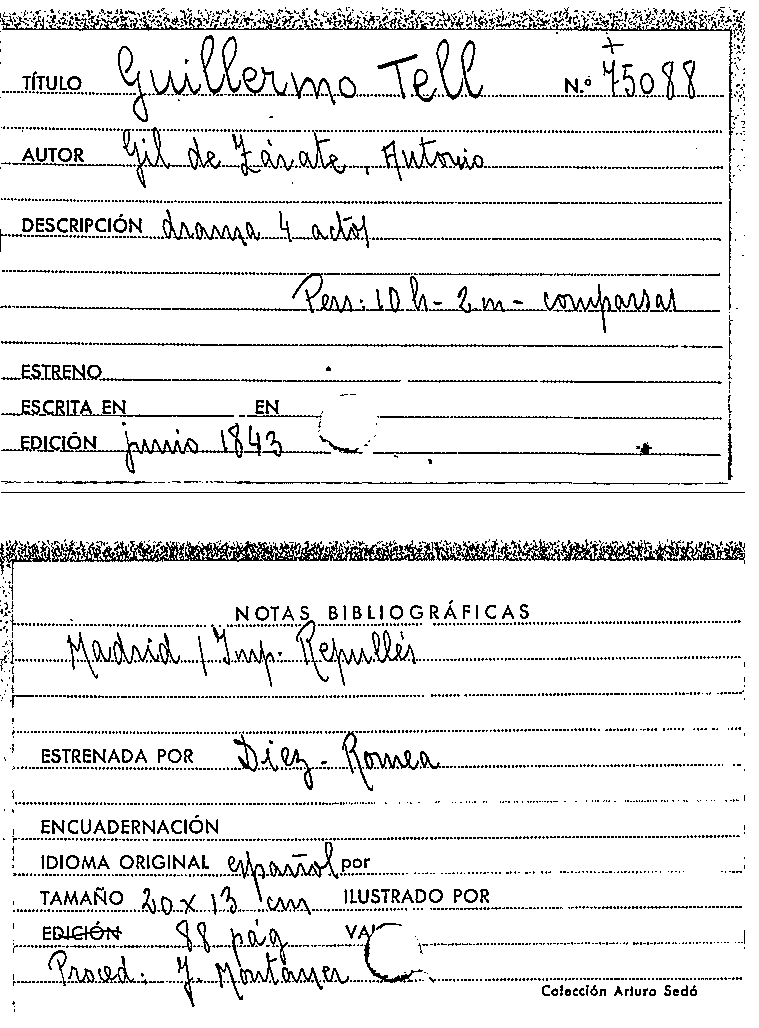 +
TÍTULO Guillermo Tell N.º 75088
AUTOR Gil de Zárate, Antonio
DESCRIPCIÓN drama 4 actos
Pers: 10 h - 2 m - comparsas
ESTRENO
ESCRITA EN EN
EDICIÓN junio 1843
NOTAS BIBLIOGRÁFICAS
Madrid / Imp. Repullés
ESTRENADA POR Diez - Romea
ENCUADERNACIÓN
IDIOMA ORIGINAL español por
TAMAÑO 20 x 13 cm ILUSTRADO POR
EDICIÓN 88 pág
Proced: J. Montaner
Colección Arturo Sedó